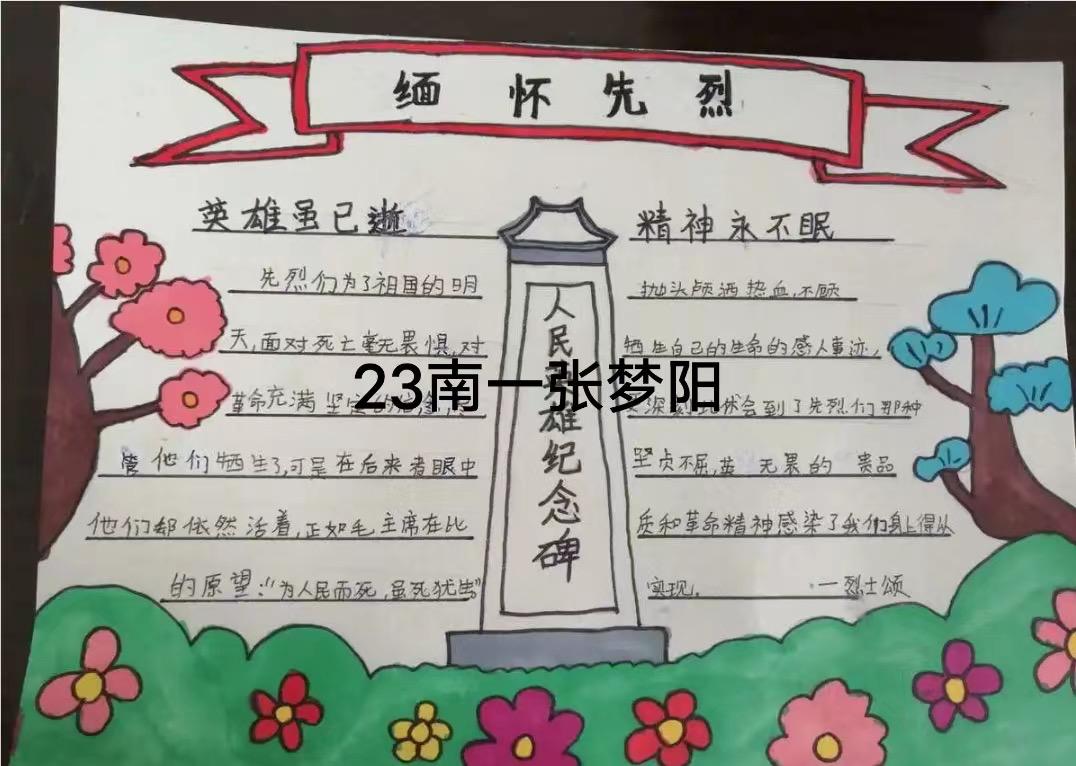 缅怀先烈
英雄虽已逝
先烈们为了祖国的明
天,面对死亡毫无畏惧,对
革命充满坚定的
他们牺牲了,可是在后来者眼中
他们却依然活着,正如毛主席在比
的原望:“为人民而死,虽死犹生”
人民英雄纪念碑
23南一张梦阳
精神永不眠
抛头颅洒热血,不顾
牺生自己的生命的感人事迹,
深刻地体会到了先烈们那种
坚贞不屈,英 无畏的 贵品
质和革命精神感染了我们身上得以
实现.
一烈士颂